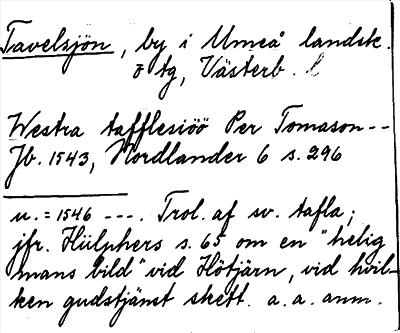 Tavelsjön, by i Umeå landsk.
o tg, Västerb. l
Westra tafflesiöö Per Tomason--
Jb. 1543, Nordlander 6 s. 296
u. = 1546 ---. Trol. af sv. tafla;
jfr. Hülphers s. 65 om en "helig
mans bild" vid Hötjärn, vid hvil-
ken gudstjänst skett. a. a. anm.